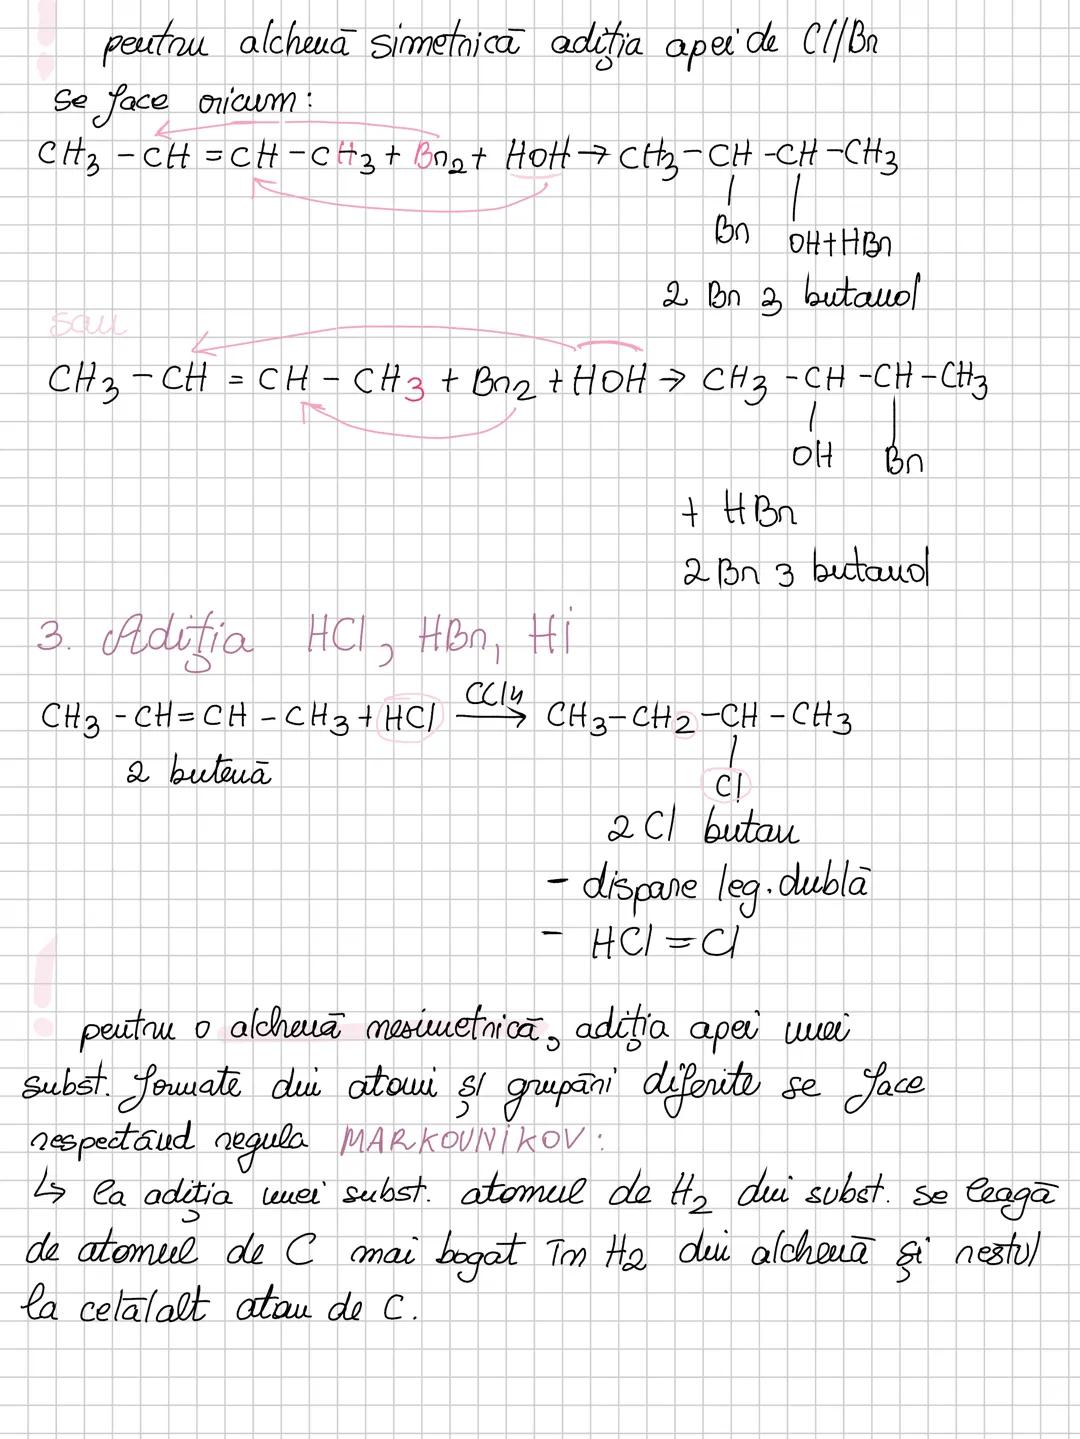 ! pentru alchenă simetrică adiția apei de Cl/Br
se face oricum:
CH3 - CH = CH - CH3 + Br2 + HOH → CH3 - CH - CH - CH3
Br OH + HBr
2 Br 3 butanol
sau
CH3 - CH = CH - CH3 + Br2 + HOH → CH3 - CH - CH - CH3
OH Br
+ HBr
2 Br 3 butanol
3. Adiția HCl, HBr, Hi
CH3 - CH = CH - CH3 + HCl →(CCl4) CH3 - CH2 - CH - CH3
2 butenă
Cl
2 Cl butan
- dispare leg. dublă
- HCl = Cl
! pentru o alchenă nesimetrică, adiția apei unei
subst. formate din atomi și grupări diferite se face
respectând regula MARKOVNIKOV:
↳ la adiția unei subst. atomul de H2 din subst. se leagă
de atomul de C mai bogat în H2 din alchenă și restul
la celălalt atom de C.